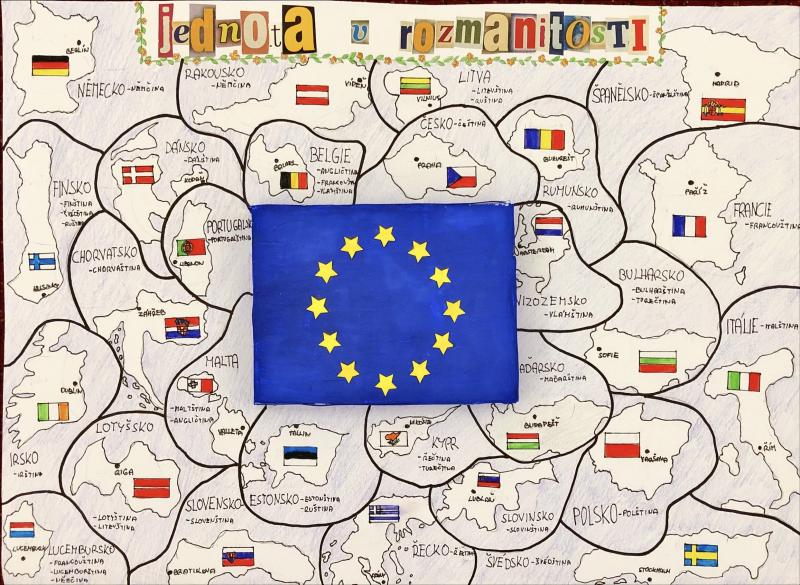 jednota v rozmanitosti
BERLÍN
NĚMECKO -NĚMČINA
RAKOUSKO
-NĚMČINA
VÍDEŇ
LITVA
-LITEVŠTINA
-RUŠTINA
VILNIUS
ŠPANĚLSKO -ŠPANĚLŠTINA
MADRID
FINSKO
-FINŠTINA
-ŠVÉDŠTINA
-RUŠTINA
HELSINKY
DÁNSKO
-DÁNŠTINA
KODAŇ
BELGIE
-ANGLIČTINA
-FRANCOUZŠTINA
-VLÁMŠTINA
BRUSEL
ČESKO -ČEŠTINA
PRAHA
BUKUREŠŤ
RUMUNSKO
-RUMUNŠTINA
PAŘÍŽ
FRANCIE
-FRANCOUZŠTINA
PORTUGALSKO
-PORTUGALŠTINA
LISABON
CHORVATSKO
-CHORVAŠTINA
ZÁHŘEB
AMSTERDAM
NIZOZEMSKO
-VLÁMŠTINA
BULHARSKO
-BULHARŠTINA
-TUREČTINA
SOFIE
ITÁLIE -ITALŠTINA
ŘÍM
DUBLIN
IRSKO
-IRŠTINA
MALTA
-MALTŠTINA
-ANGLIČTINA
VALLETA
MAĎARSKO
-MAĎARŠTINA
BUDAPEŠŤ
LOTYŠSKO
RIGA
-LOTYŠTINA
-LITEVŠTINA
TALLIN
ESTONSKO -ESTONŠTINA
-RUŠTINA
NIKÓSIE
KYPR
-ŘEČTINA
-TUREČTINA
VARŠAVA
POLSKO -POLŠTINA
LUBLAŇ
SLOVINSKO
-SLOVINŠTINA
SLOVENSKO
-SLOVENŠTINA
BRATISLAVA
LUCEMBURK
LUCEMBURSKO
-FRANCOUŠTINA
-LUCEMBURŠTINA
-NĚMČINA
ŘECKO -ŘEČTINA
ŠVÉDSKO -ŠVÉDŠTINA
STOCKHOLM